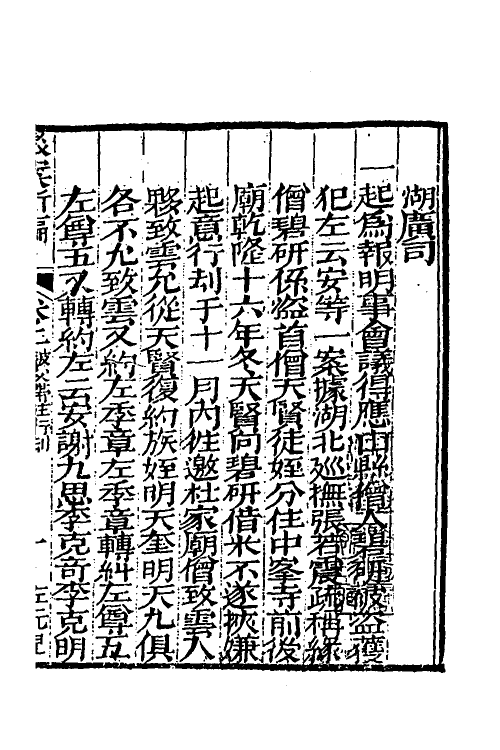 湖廣司
一起為報明事會議得應山縣僧人碧研被盜獲
犯左云安等一案據湖北廵撫張若震疏稱緣
僧碧研係盜首僧天賢徒姪分住中峯寺前後
廟乾隆十六年冬天賢向碧研借米不遂挾嫌
起意行刦于十一月內徃邀杜家廟僧致雲入
夥致雲允從天賢復約族姪明天奎明天九俱
各不允致雲又約左季章左季章轉糾左尊五
左尊五又轉約左云安謝九思李克奇李克明
新編